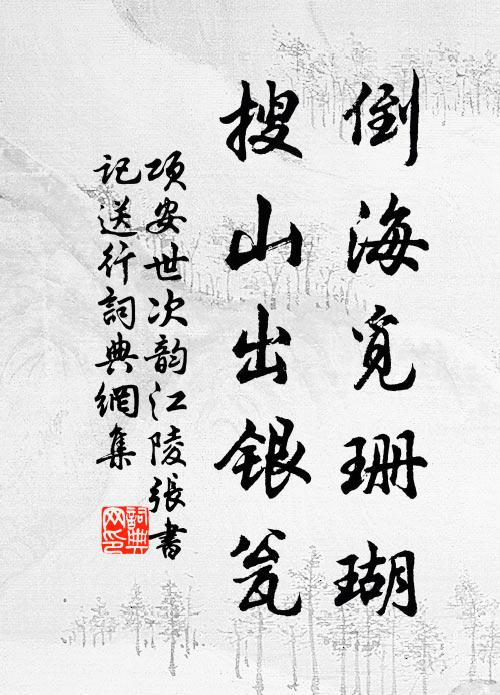 倒海覓珊瑚
搜山出银瓮
项安世次韵江陵張書
记送行詞典網集
詞典
网印